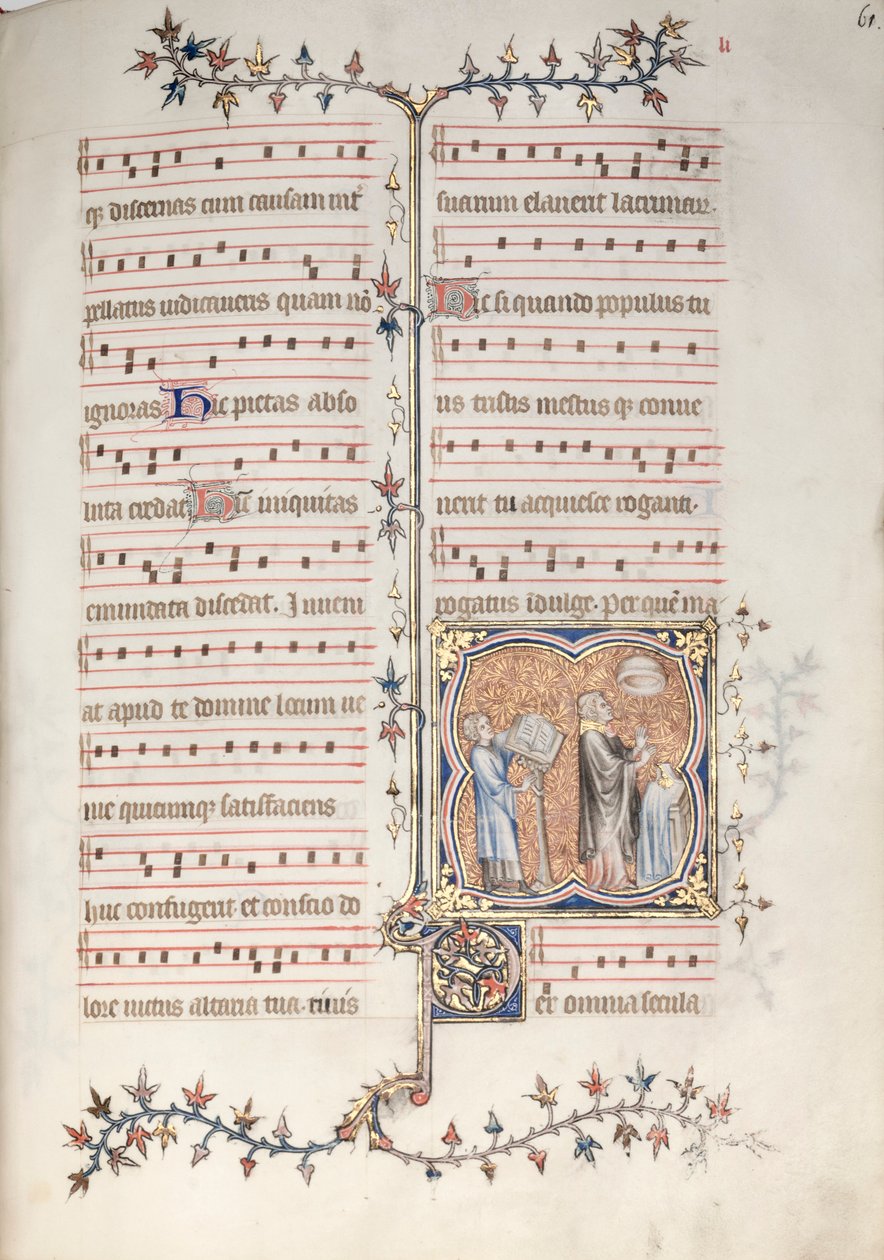 61.
li
q; discernas cum causam int̾
pellatus iudicaueris quam nō
ignoras Hic pietas abso
luta credat Hīc iniquitas
emundata discedat. Inueni
at apud te domine locum ue
nie quicumq; satisfaciens
huc confugerit. et conscio do
lore uictus altaria tua. riuis
suarum elauerit lacrimarr.
Hic si quando populus tu
us tristis mestus q; conue
nerit tu acquiesce roganti.
rogatus īdulge. Per quē ma
Per omnia secula